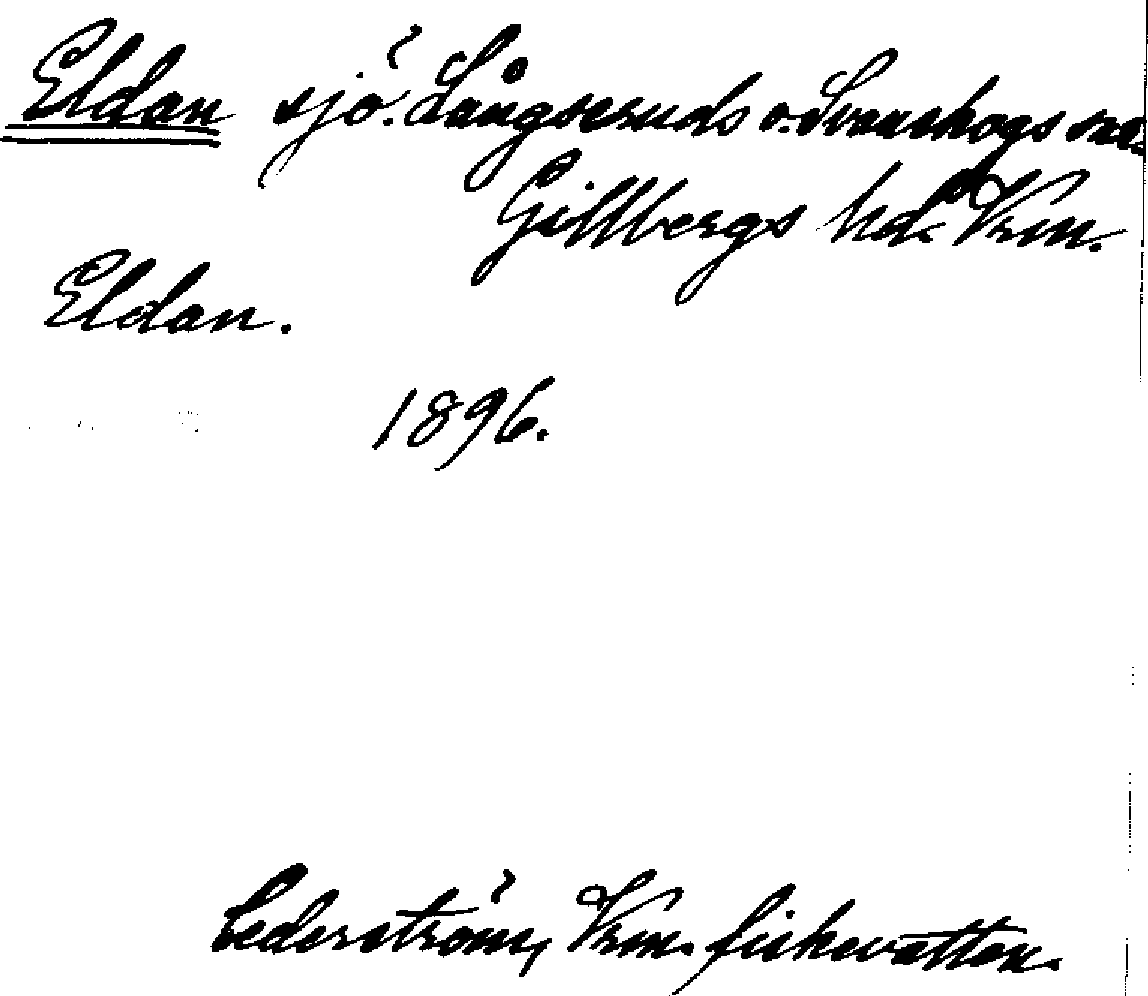 Eldan sjö. Långseruds o. Svanskogs snr.
Gillbergs hd. Vrm.
Eldan.
1896.
Cederström, Vrm. fiskevatten.